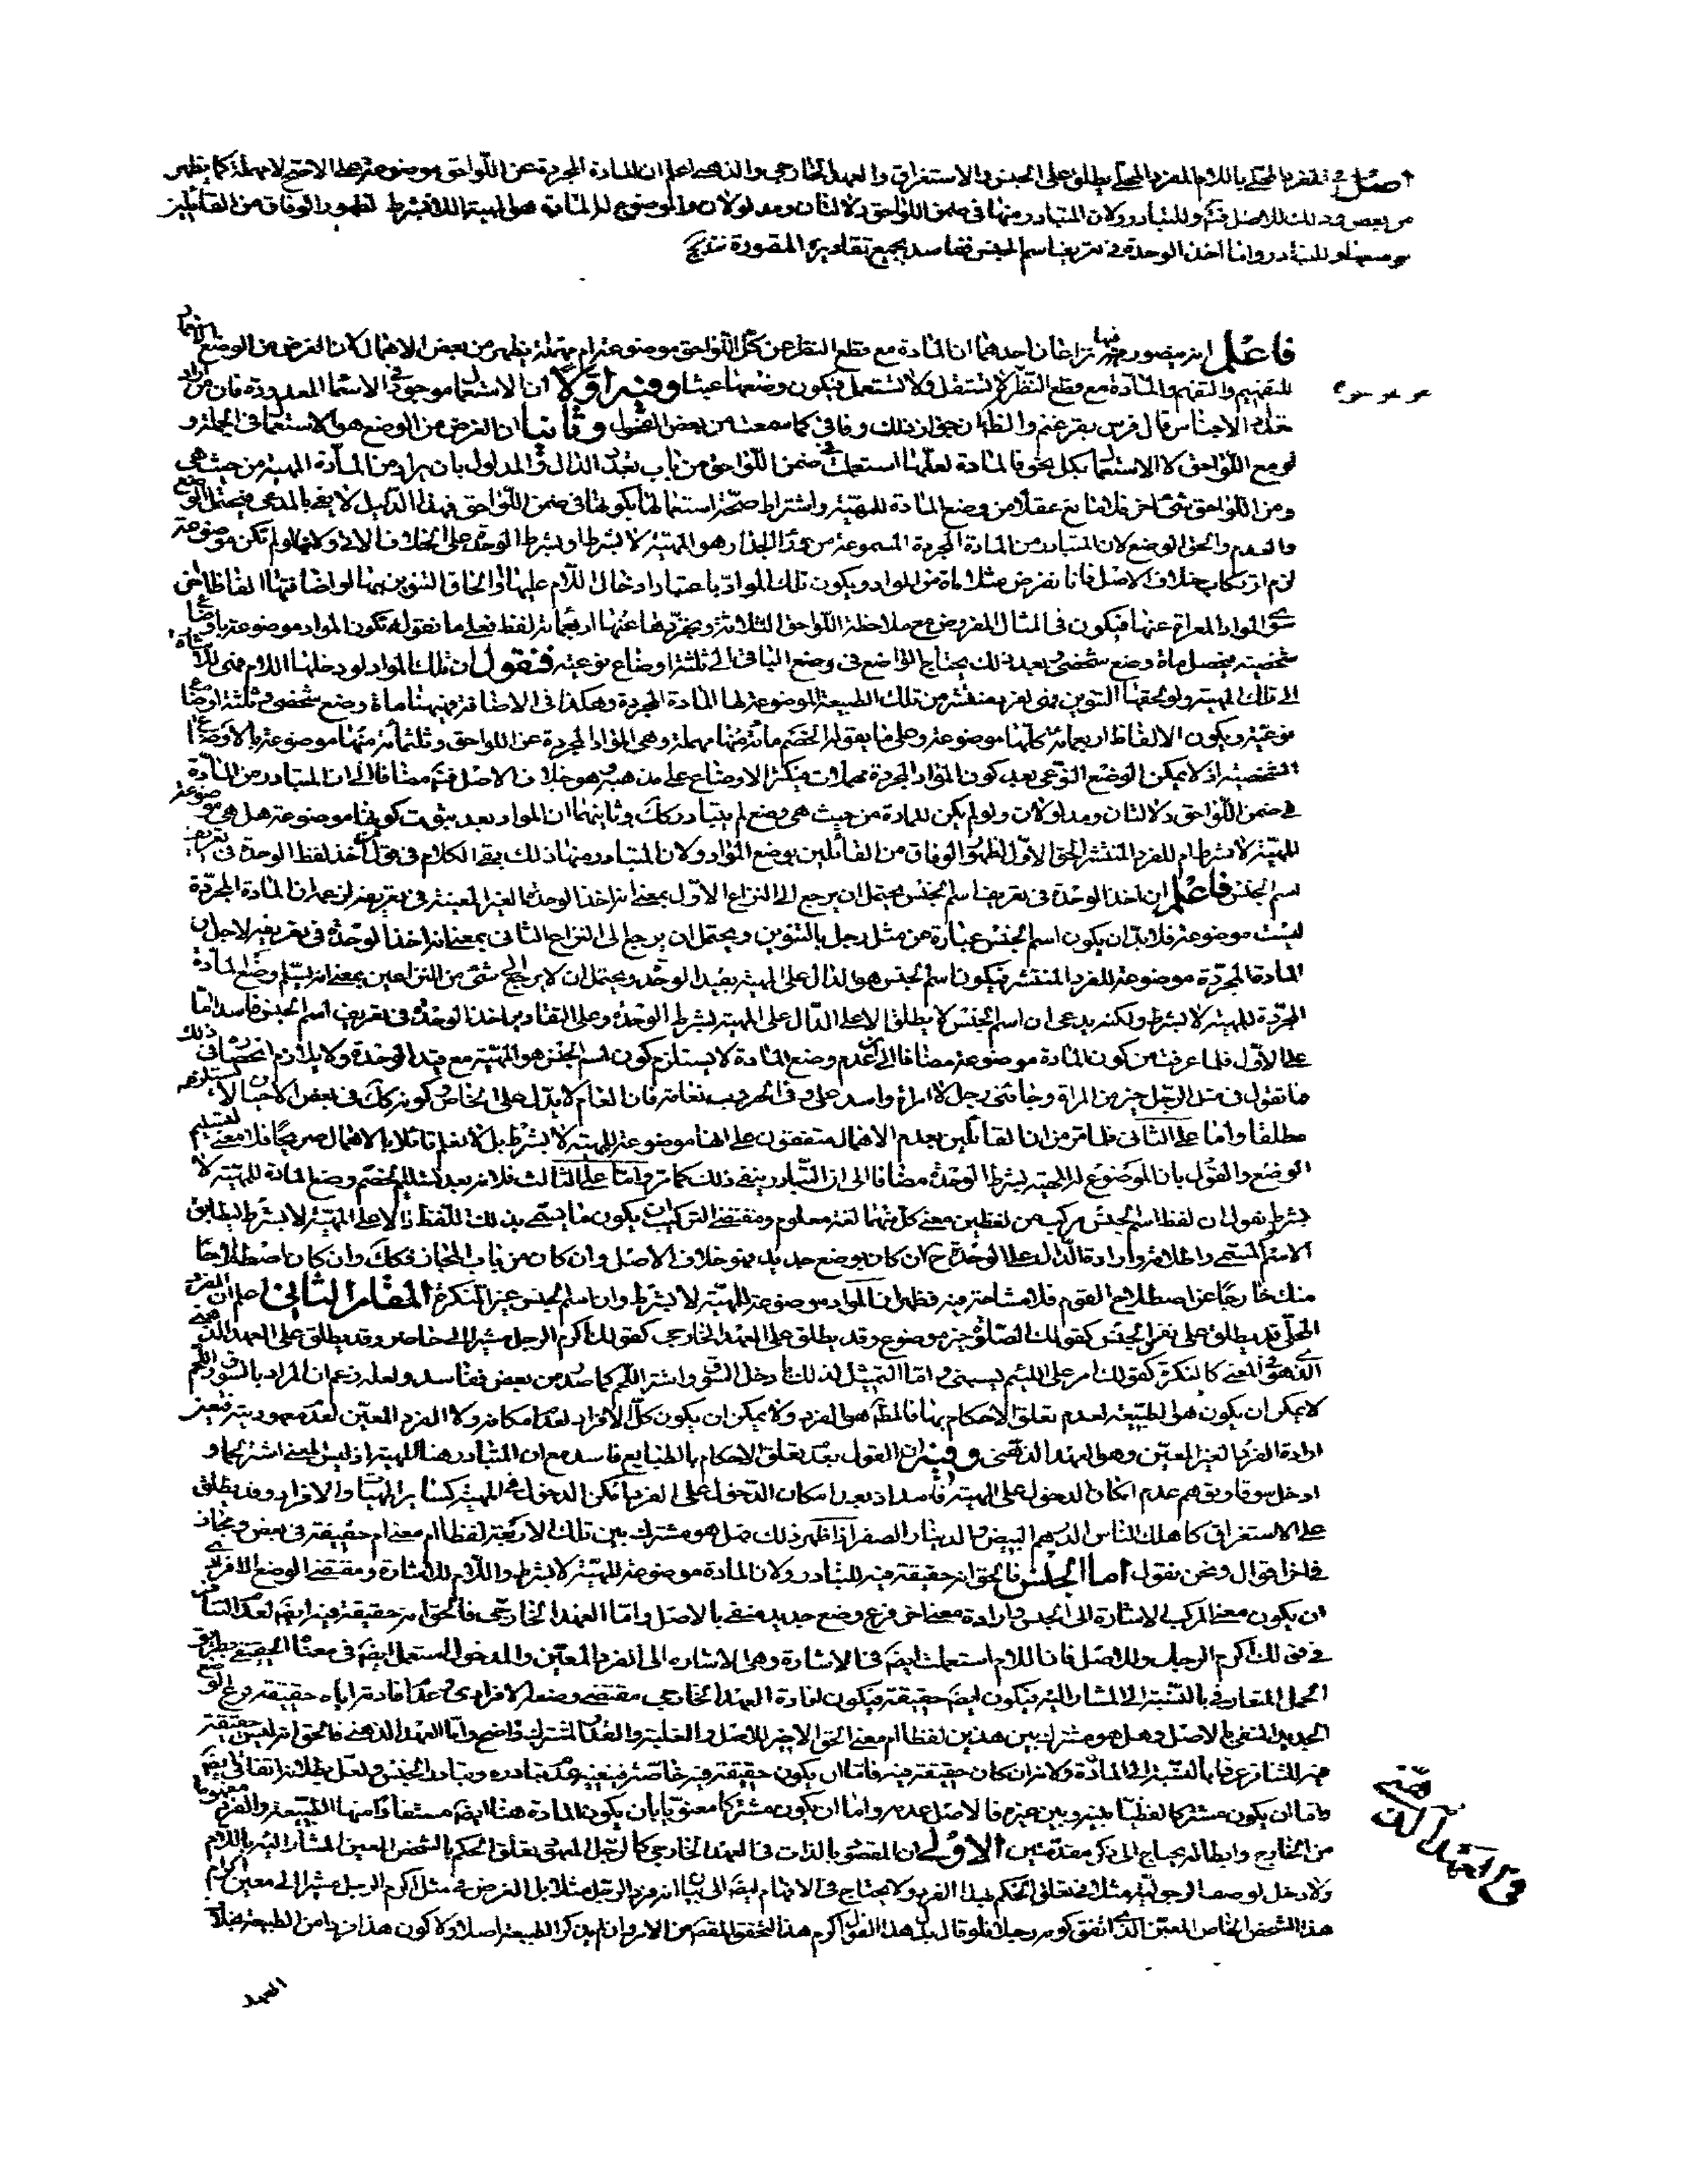 اصل المفرد المحلى باللام المفرد المحلى يطلق على الجنس والاستغراق والعهد الخارجي والذهني اعلم ان المادة المجردة عن اللواحق موضوعة على الاصح لا مهملة كما يظهر
من بعض وذلك للاصل فيه وللتبادر ولان المتبادر منها في ضمن اللواحق دلالتان ومدلولان والموضوع له المادة هو المهية اللابشرط لظهور الوفاق من القائلين
بوضعها وللتبادر واما اخذ الوحدة في تعريف اسم الجنس ففاسد بجميع تقاديره المقصورة
فاعلم انه يتصور فيها نزاعان احدهما ان المادة مع قطع النظر عن كل اللواحق موضوعة ام مهملة يظهر من بعض الاهمال لان الغرض من الوضع
للتفهيم والتفهم والمادة مع قطع النظر لا تستقل ولا تستعمل فيكون وضعها عبثا وفيه اولا ان الاستعمال موجود في الاسماء المعدودة فان من اراد
الاجناس قال فرس بقر غنم والظاهر جواز ذلك وفاقي كما سمعته من بعض الفحول وثانيا ان الغرض من الوضع هو الاستعمال في الجملة و
لو مع اللواحق لا الاستعمال بكل نحو فالمادة لعلها استعملت في ضمن اللواحق من باب تعدد الدال والمدلول بان يراد من المادة المهية من حيث هي
ومن اللواحق شيء اخر فلا مانع عقلا من وضع المادة للمهية واشتراط صحة استعمالها بكونها في ضمن اللواحق فهذا الدليل لا يفي بالمدعى فيحتمل الوضع
والعدم والحق الوضع لان المتبادر من المادة المجردة المسموعة من وراء الجدار هو المهية لا بشرط وبشرط الوحدة على الخلاف الاتي ولانها لو لم تكن موضوعة
لزم ارتكاب خلاف الاصل فانا نفرض مثلا ماة من المواد ويكون تلك المواد باعتبار ادخال اللام عليها او الحاق التنوين بها او اضافتها الفاظا اخر
سوى المواد المعراة عنها فيكون في المثال المفروض مع ملاحظة اللواحق الثلاثة وتجردها عنها اربعمائة لفظ فعلى ما نقوله تكون المواد موضوعة باوضاع
شخصية فيحصل ماة وضع شخصي وبعد ذلك يحتاج الواضع في وضع الباقي الى ثلثة اوضاع نوعية فنقول ان تلك المواد لو دخلها اللام فهي للاشارة
الى تلك المهية ولو لحقها التنوين فهي لفرد منتشر من تلك الطبيعة الموضوعة لها المادة المجردة وهكذا في الاضافة فيهنا ماة وضع شخصي وثلثة اوضاع
نوعية ويكون الالفاظ اربعمائة كلها موضوعة وعلى ما يقوله الخصم مائة منها مهملة وهي المواد المجردة عن اللواحق وثلثمائة منها موضوعة بالاوضاع
الشخصية اذ لا يمكن الوضع النوعي بعد كون المواد المجردة مهملات فيكثر الاوضاع على مذهبه وهو خلاف الاصل فيه مضافا الى ان المتبادر من المادة
في ضمن اللواحق دلالتان ومدلولان ولو لم يكن للمادة من حيث هي وضع لم يتبادر كك وثانيهما ان المواد بعد ثبوت كونها موضوعة هل هي موضوعة
للمهية لا بشرط ام للفرد المنتشر الحق الاول لظهور الوفاق من القائلين بوضع المواد ولان المتبادر منها ذلك بقي الكلام في اخذ لفظ الوحدة في تعريف
اسم الجنس فاعلم ان اخذ الوحدة في تعريف اسم الجنس يحتمل ان يرجع الى النزاع الاول بمعنى انه اخذ الوحدة الغير المعينة في تعريفه لزعمه ان المادة المجردة
ليست موضوعة فلا بد ان يكون اسم الجنس عبارة عن مثل رجل بالتنوين ويحتمل ان يرجع الى النزاع الثاني بمعنى انه اخذ الوحدة في تعريفه لاجل ان
المادة المجردة موضوعة للفرد المنتشر فيكون اسم الجنس هو الدال على المهية بقيد الوحدة ويحتمل ان لا يرجع الى شيء من النزاعين بمعنى انه يسلم وضع المادة
المجردة للمهية لا بشرط ولكنه يدعي ان اسم الجنس لا يطلق الا على الدال على المهية بشرط الوحدة وعلى التقادير اخذ الوحدة في تعريف اسم الجنس فاسد اما
على الاول فلما عرفت من كون المادة موضوعة مضافا الى ان عدم وضع المادة لا يستلزم كون اسم الجنس هو المهية مع قيد الوحدة ولا يلازم انحصاره في ذلك
ما تقول في مثل الرجل خير من المراة وجائني رجل لا امراة واسد علي وفي الحروب نعامة فان العام لا يدل على الخاص وكونه كك في بعض الاحيان لا يستلزمه
مطلقا واما على الثاني فلما مر من ان القائلين بعدم الاهمال متفقون على انها موضوعة للمهية لا بشرط بل لا نعلم قائلا بالاهمال صريحا فلا معنى لتسليم
الوضع والقول بان الموضوع له المهية بشرط الوحدة مضافا الى ان التبادر ينفي ذلك كما مر واما على الثالث فلانه بعد تسليم الخصم وضع المادة للمهية لا
بشرط نقول ان لفظ اسم الجنس مركب من لفظين معنى كل منهما لغة معلوم ومقتضى التركيب ان يكون ما يسمى بذلك اللفظ دالا على المهية لا بشرط ليطابق
الاسم المسمى واطلاقه وارادة الدال على الوحدة ح ان كان بوضع جديد فهو خلاف الاصل وان كان من باب المجاز فكك وان كان اصطلاحا
منك خارجا عن اصطلاح القوم فلا مشاحة فيه فظهر ان المواد موضوعة للمهية لا بشرط وان اسم الجنس غير النكرة المقام الثاني اعلم ان المفرد
المحلى قد يطلق على نفس الجنس كقولك الصلوة خير موضوع وقد يطلق على العهد الخارجي كقولك اكرم الرجل مشيرا الى خاص وقد يطلق على العهد الذهني
الذي هو في المعنى كالنكرة كقولك امر على اللئيم يسبني واما التمثيل لذلك بادخل السوق واشتر اللحم كما صدر من بعض ففاسد ولعله زعم ان المراد بالسوق واللحم
لا يمكن ان يكون هو الطبيعة لعدم تعلق الاحكام بها فالمط هو الفرد ولا يمكن ان يكون كل الافراد لعدم امكانه ولا الفرد المعين لعدم معهوديته فتعين
ارادة الفرد الغير المعين وهو العهد الذهني وفيه ان القول بعدم تعلق الاحكام بالطبايع فاسد مع ان المتبادر هنا المهية اذ ليس المعنى اشتر لحما و
ادخل سوقا وتوهم عدم امكان الدخول على المهية فاسد اذ بعد امكان الدخول على الفرد امكن الدخول في المهية كساير المهيات والافراد وقد يطلق
على الاستغراق كاهلك الناس الدرهم البيض والدينار الصفر اذا ظهر ذلك فهل هو مشترك بين تلك الاربعة لفظا ام معنى ام حقيقة في بعض ومجاز
في اخر اقوال ونحن نقول اما الجنس فالحق انه حقيقة فيه للتبادر ولان المادة موضوعة للمهية لا بشرط واللام للاشارة ومقتضى الوضع الافرادي
ان يكون معنى المركب الاشارة الى الجنس وارادة معنى اخر فرع وضع جديد منفي بالاصل واما العهد الخارجي فالحق انه حقيقة فيه ايضا لعدم التنافر
في قولك اكرم الرجل وللاصل فان اللام استعملت ايضا في الاشارة وهي الاشارة الى الفرد المعين والمدخول استعمل ايضا في معناه الحقيقي بطريق
الحمل المتعارفي بالنسبة الى المشار اليه فيكون ايضا حقيقة فيكون افادة العهد الخارجي مقتضى وضعه الافرادي وعدم افادته اياه حقيقة فرع الوضع
الجديد المنفي بالاصل وهل هو مشترك بين هذين لفظا ام معنى الحق الاخير للاصل والغلبة والقدر المشترك واضح واما العهد الذهني فالحق انه ليس حقيقة
فيه للتنافر عرفا بالنسبة الى المادة ولانه ان كان حقيقة فيه فاما ان يكون حقيقة فيه خاصة فينفيه عدم تبادره وتبادر الجنس ولعل بطلانه اتفاقي ايضا
واما ان يكون مشتركا لفظيا بينه وبين غيره فالاصل عدمه واما ان يكون مشتركا معنويا بان يكون المادة هنا ايضا مستفادا منها الطبيعة والفرد مفهوما
من الخارج وابطاله يحتاج الى ذكر مقدمتين الاولى ان المقصود بالذات في العهد الخارجي كالرجل المعهود تعلق الحكم بالشخص المعين المشار اليه باللام
ولا دخل لوصف الرجولية مثلا في تعلق الحكم بهذا الفرد ولا يحتاج في الافهام ايضا الى بيان انه فرد الرجل مثلا بل الغرض في مثل اكرم الرجل مشيرا الى معين اكرام
هذا الشخص الخاص المعين الذي اتفق كونه رجلا فلو قال بدل هذا القول اكرم هذا لتحقق المقصد من الامر وان لم يذكر الطبيعة اصلا ولا كون هذا فردا من الطبيعة بخلاف
العهد
في العهد الذهني